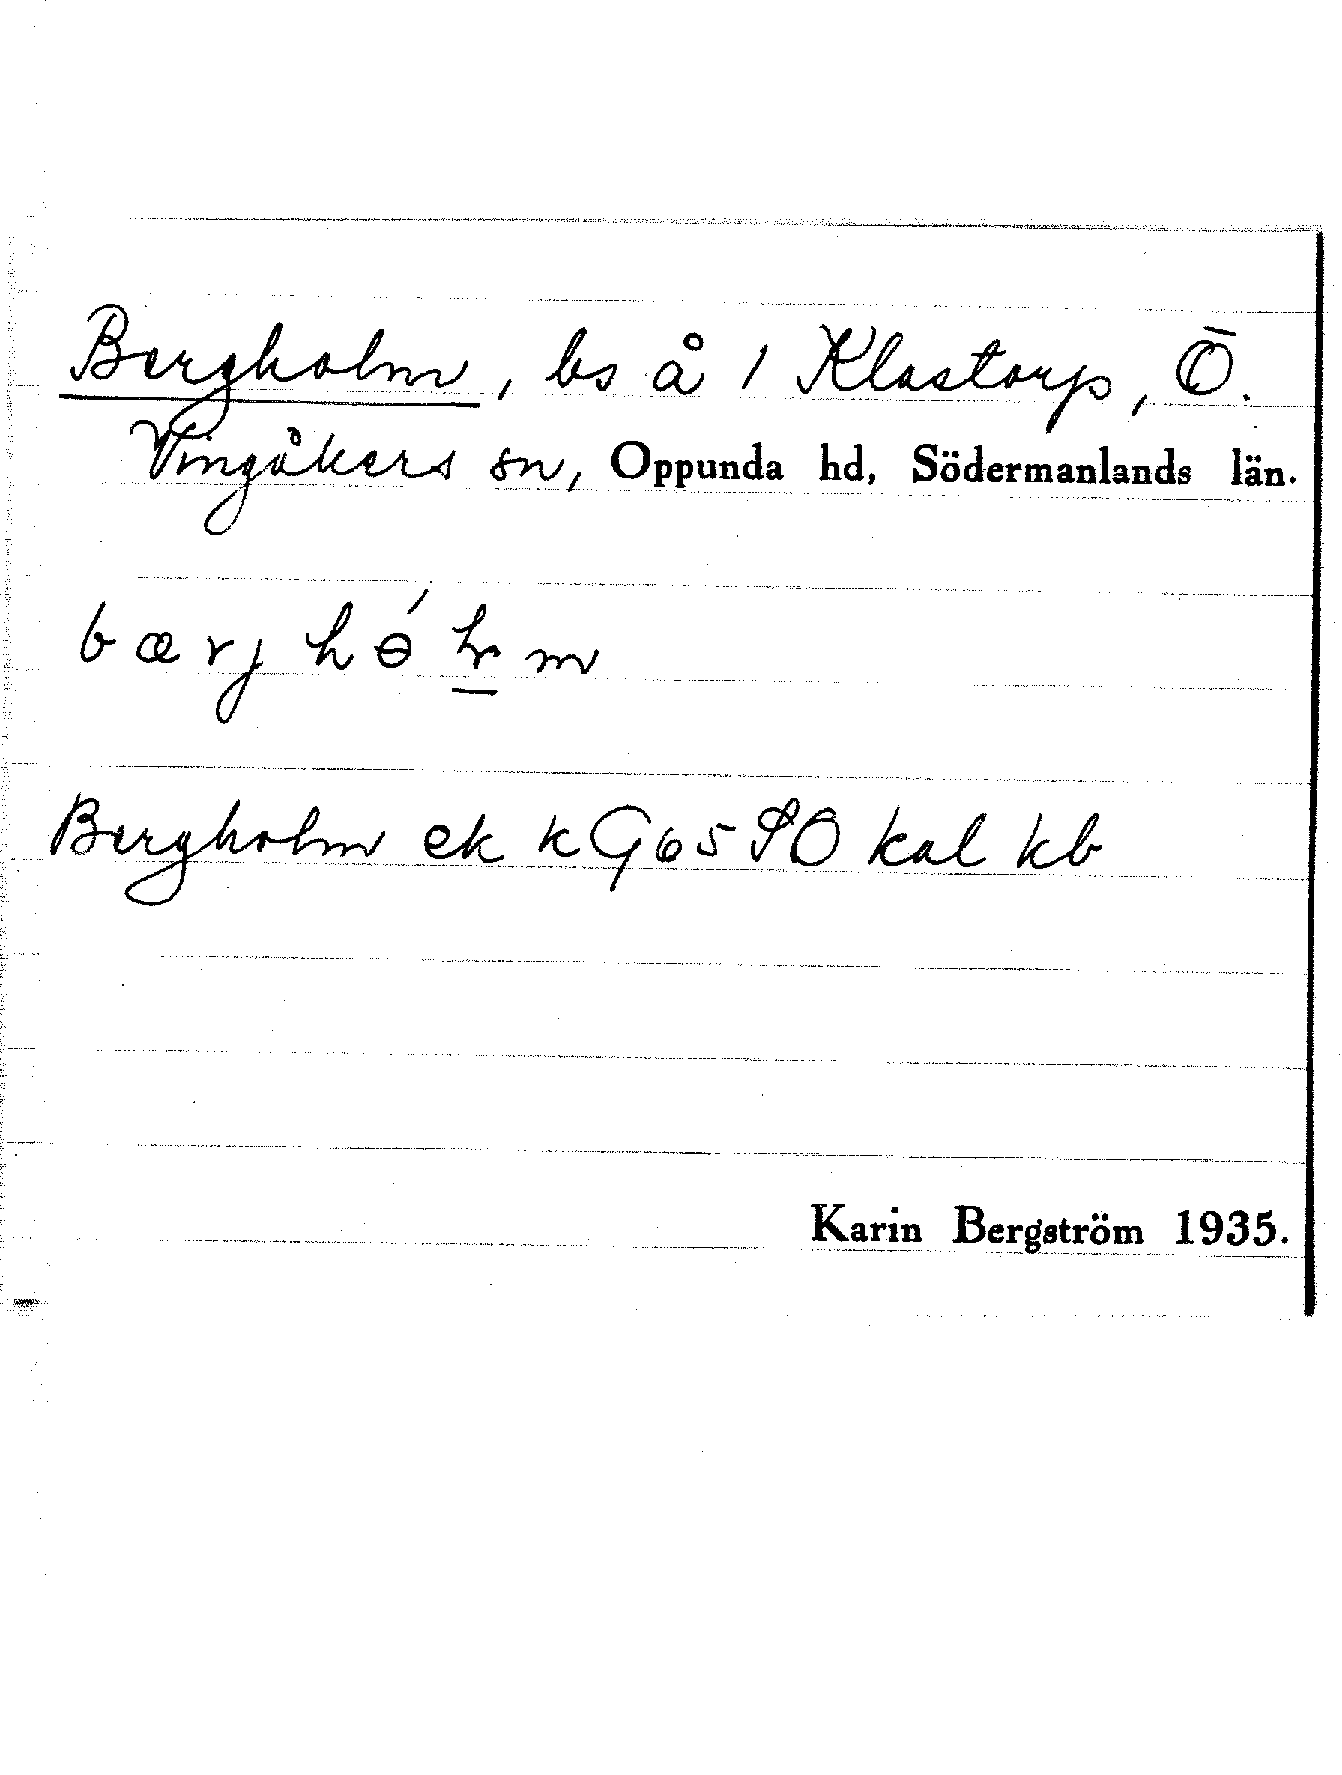 Bergholm, bs å 1 Klastorp, Ö.
Vingåkers sn, Oppunda hd, Södermanlands län.
bærj hɵ́ m
Bergholm ek k G65 SO kal kb
Karin Bergström 1935.